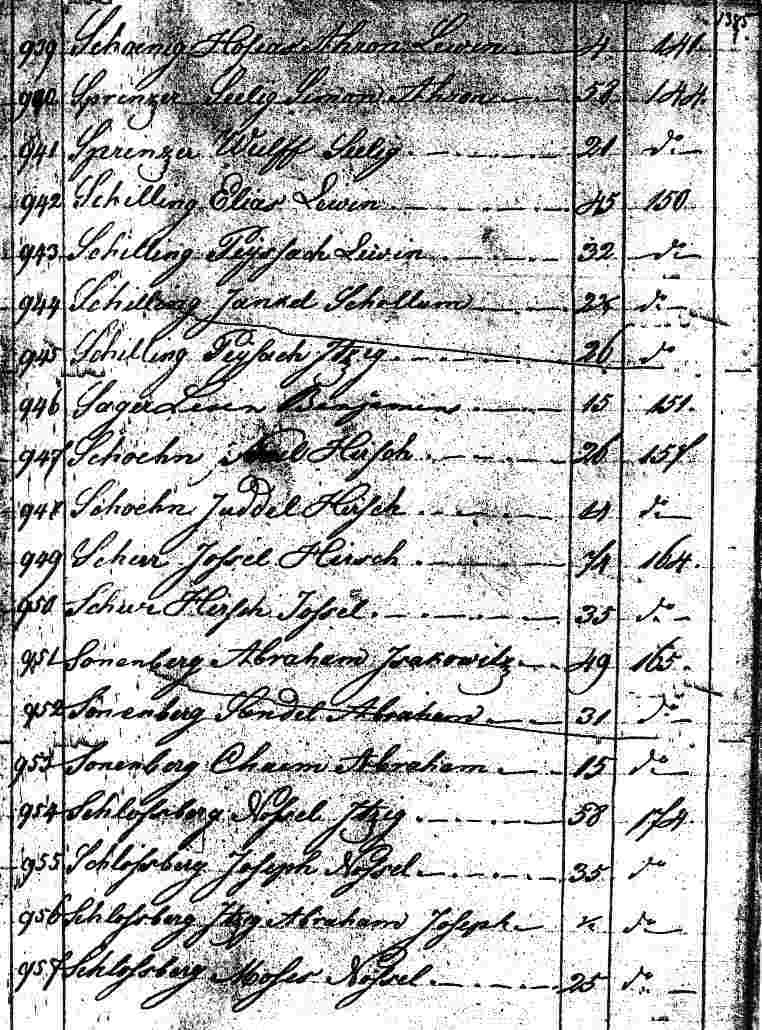 1385.
939 Schoenig Hosias Ahron Lewin 4 141.
940 Sprenzer Seelig Simon Ahron 53 144.
941 Sprenzer Wulff Seelig 21 do
942 Schilling Elias Lewin 45 150
943 Schilling Peysach Lewin 32 do
944 Schilling Jankel Schollum 22 do
945 Schilling Peysach Itzig 26 do
946 Sager Benjamin 15 151.
947 Schoehn Hirsch 26 157
947 Schoehn Juddel Hirsch 14 do
949 Scherr Jossel Hirsch 74 164.
950 Scherr Hirsch Jossel 35 do
951 Sonenberg Abraham Isakowitz 49 165.
952 Sonenberg Sendel Abraham 31 do
953 Sonenberg Chaem Abraham 15 do
954 Schlossberg Nossel Itzig 58 174
955 Schlossberg Joseph Nossel 35 do
956 Schlossberg Itzig Abraham Joseph ½ do
957 Schlossberg Moses Nossel 25 do